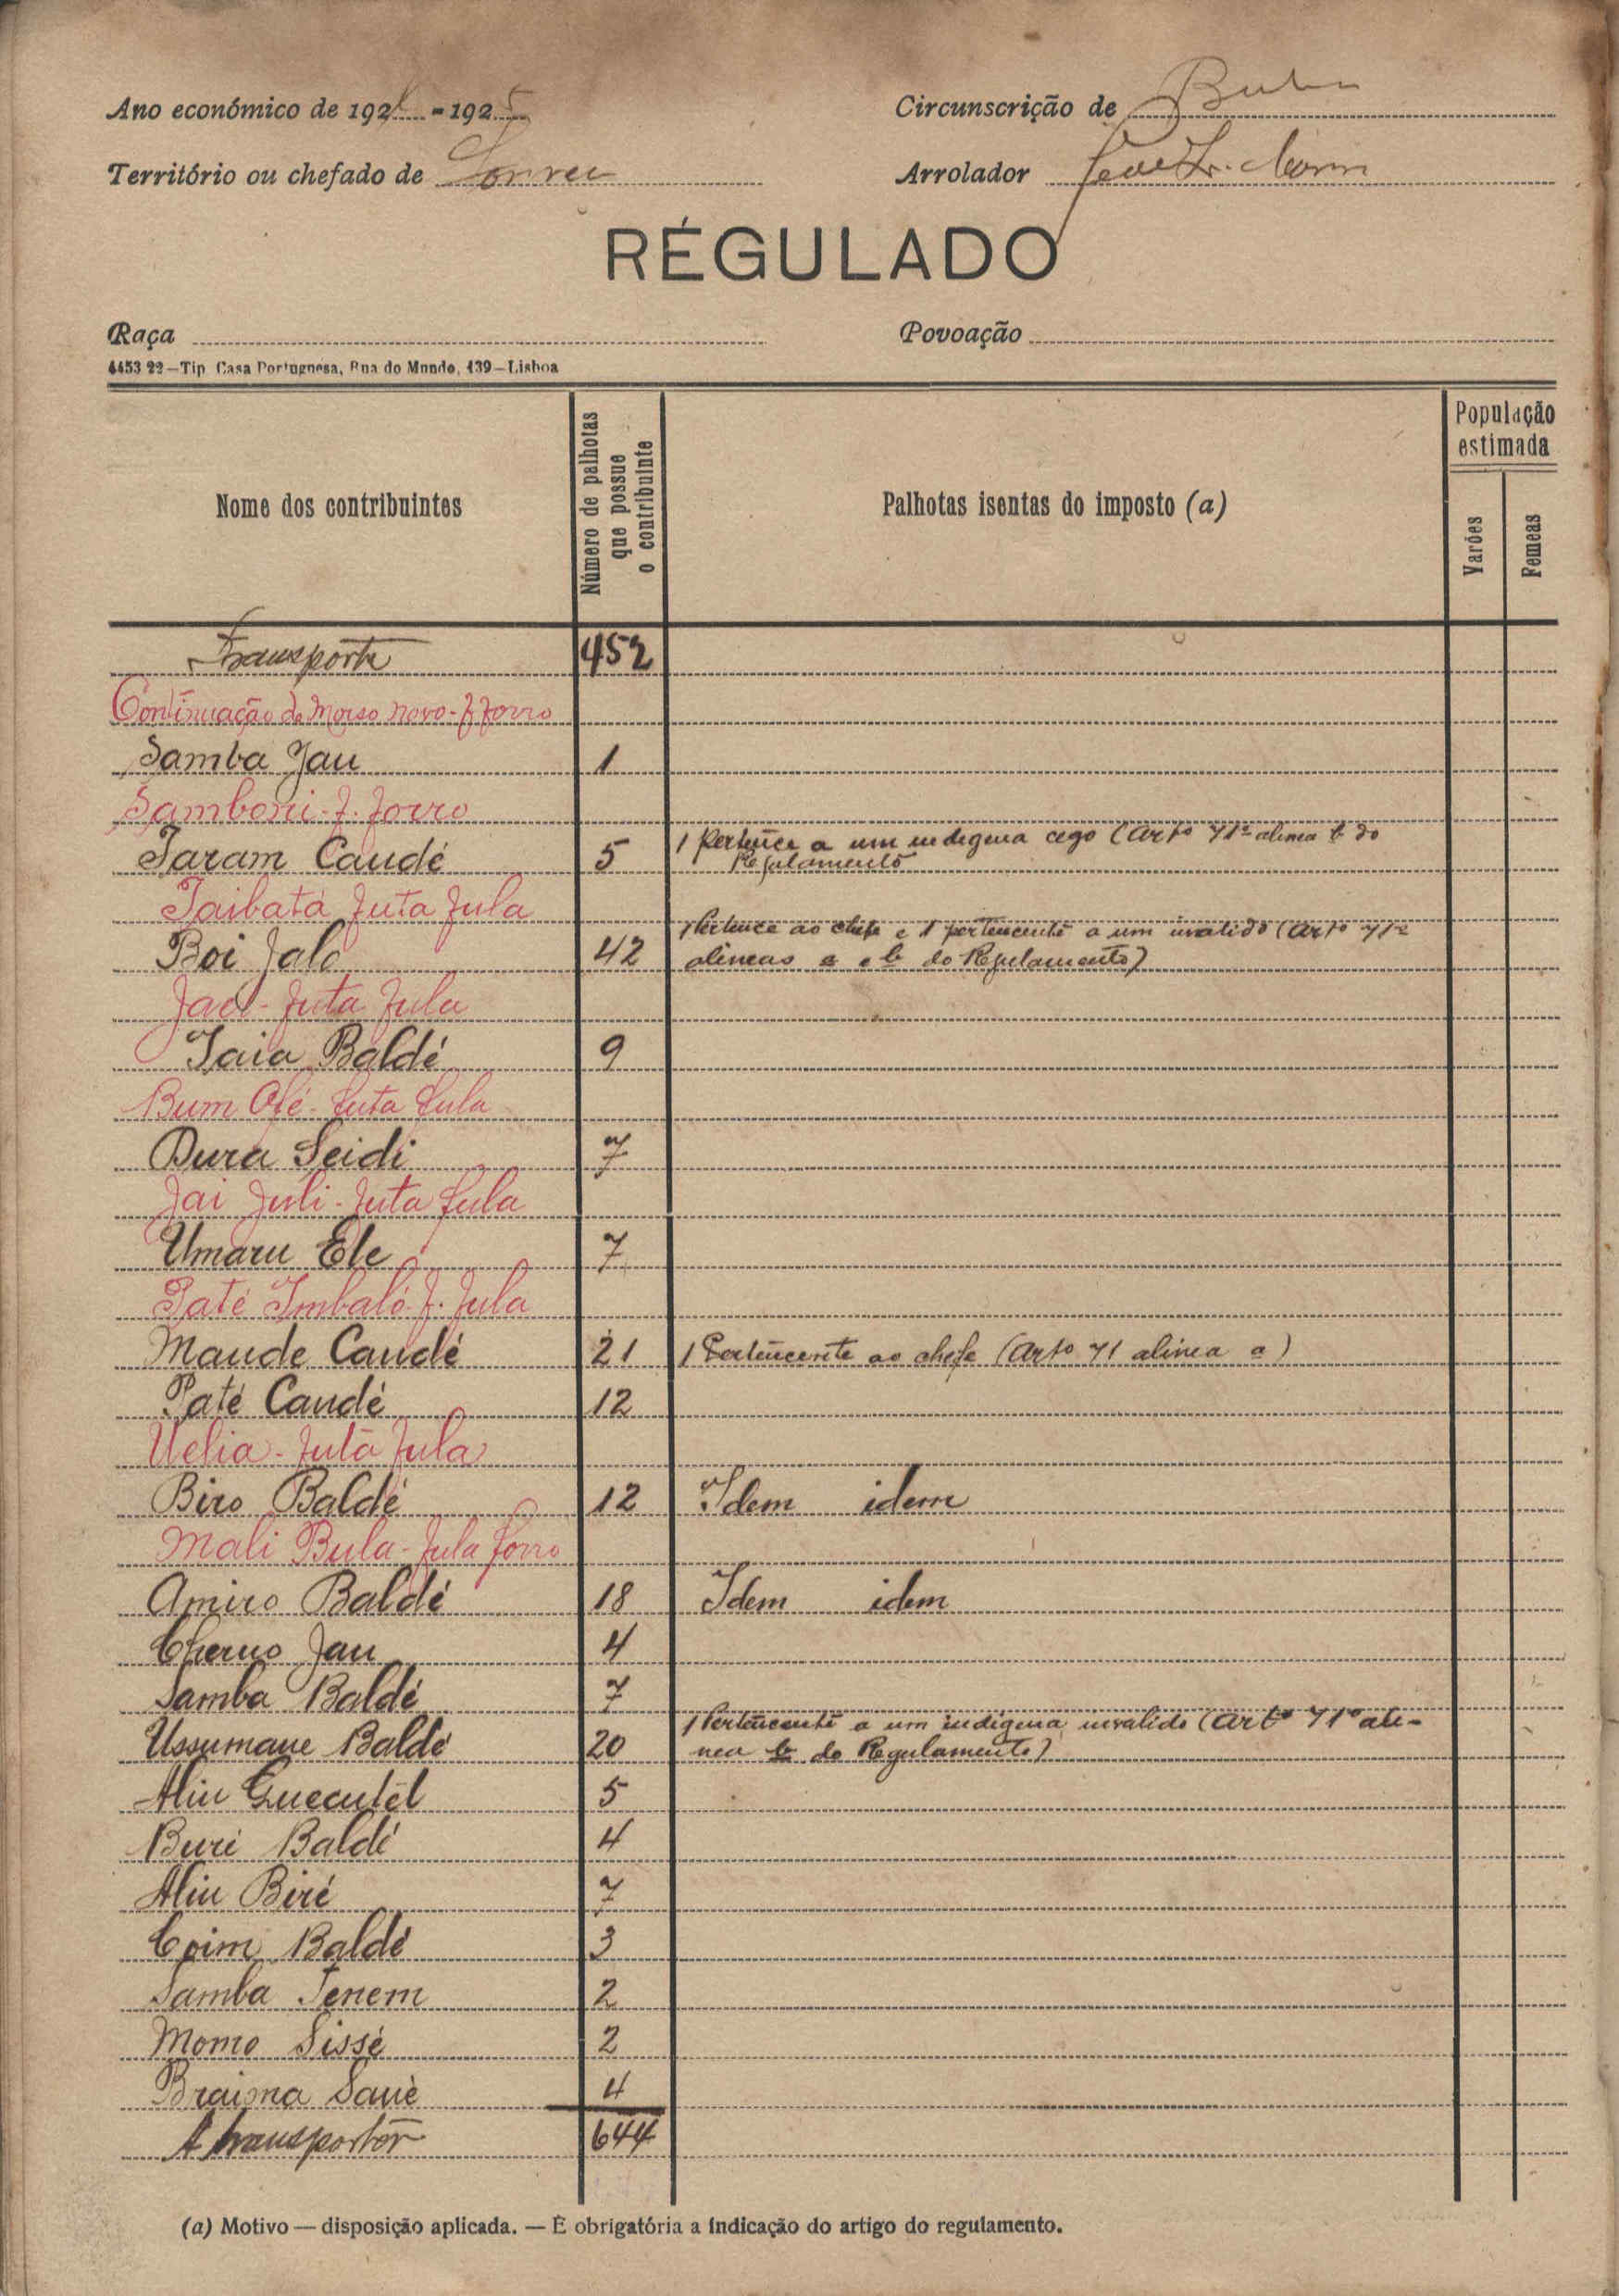 Ano económico de 1924 - 1925
Circunscrição de Buba
Território ou chefado de Correa
Arrolador
RÉGULADO
Raça
Povoação
4453 22—Tip Casa Portuguesa, Rua do Mundo, 139—Lisboa
Nome dos contribuintes
Número de palhotas que possue o contribuinte
Palhotas isentas do imposto (a)
População estimada
Varões
Femeas
Transporte 452
Continuação de Morso Novo - F. Forro
Samba Jau 1
Samboni - F. Forro
Taram Caudé 5 1 Pertence a um indigena cego (Artº 71º alinea b do
Regulamento
Taibatá Futa Fula
Boi Jaló 42 1 Pertence ao chefe e 1 pertencente a um invalido (Artº 71º
alineas a e b do Regulamento)
Jael - Futa Fula
Iaia Baldé 9
Bum Olé - Futa Fula
Dura Seidi 7
Jai Juli - Futa Fula
Umaru Ele 7
Paté Imbaló - F. Fula
Maude Caudé 21 1 Pertencente ao chefe (Artº 71 alinea a)
Paté Caudé 12
Uelia - Futa Fula
Biro Baldé 12 Idem idem
Mali Bula - Fula Forro
Amiro Baldé 18 Idem idem
Cherno Jau 4
Samba Baldé 7
Ussumane Baldé 20 1 Pertencente a um indigena invalido (Artº 71º ali-
nea b do Regulamento)
Aliu Guecutel 5
Buré Baldé 4
Aliu Biré 7
Coim Baldé 3
Samba Tenem 2
Momo Sissé 2
Braima Sané 4
A transportar 644
(a) Motivo — disposição aplicada. — É obrigatória a indicação do artigo do regulamento.